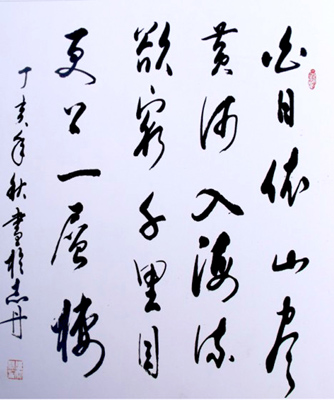 白日依山尽
黄河入海流
欲穷千里目
更上一层楼
丁亥年秋书于志丹